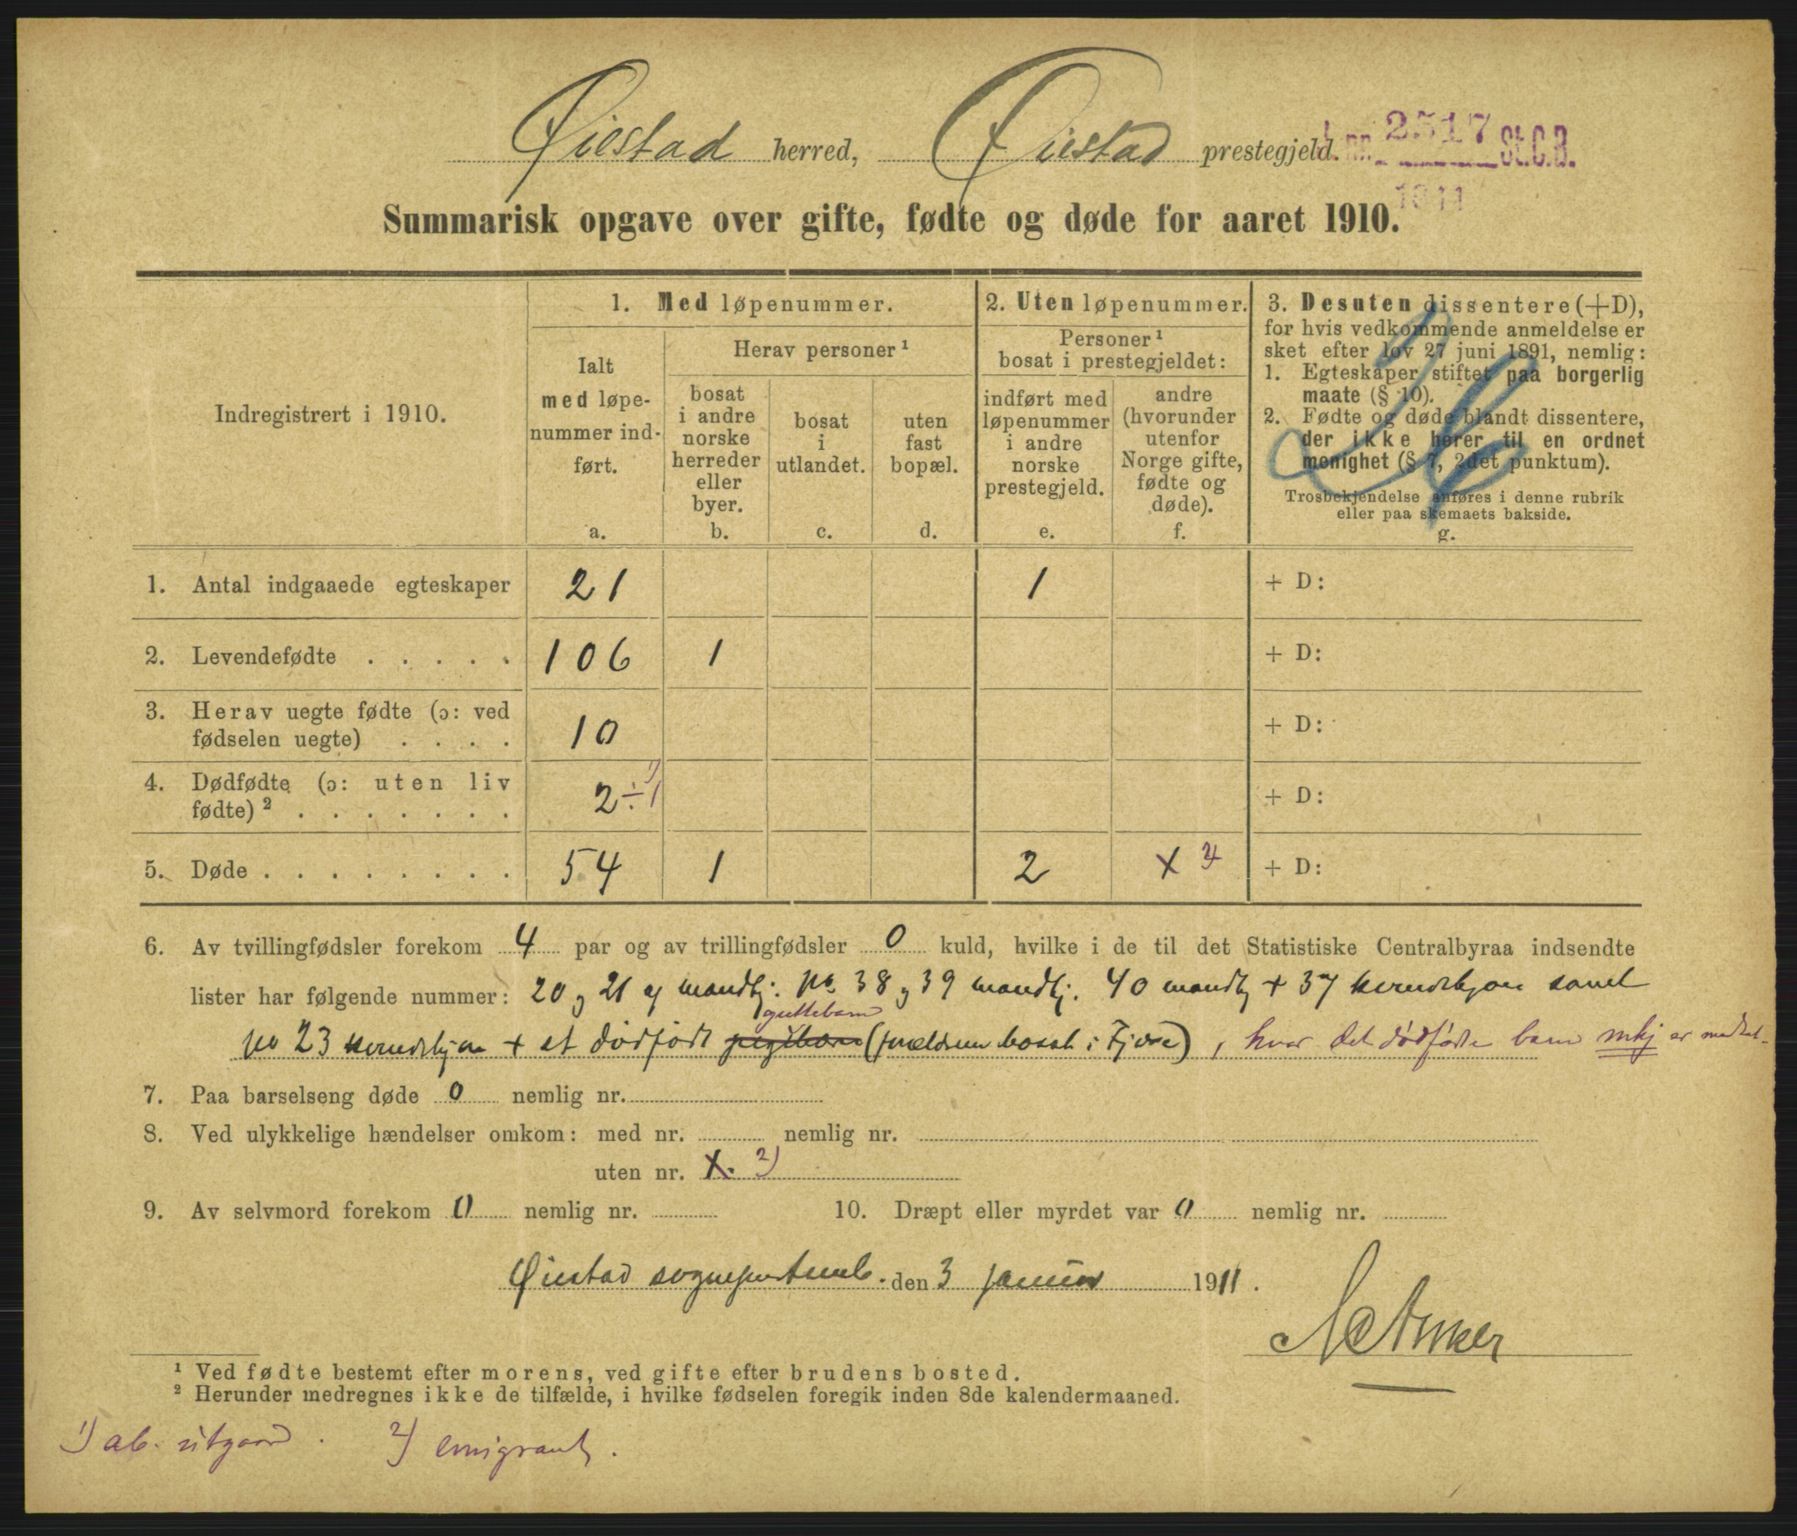 Øiestad herred, Øiestad prestegjeld. J. nr. 2517 St.C.B.
1911
Summarisk opgave over gifte, fødte og døde for aaret 1910.
Indregistrert i 1910.
1. Med løpenummer.
Ialt
med løpe-
nummer ind-
ført.
a.
Herav personer ¹
bosat
i andre
norske
herreder
eller
byer.
b.
bosat
i
utlandet.
c.
uten
fast
bopæl.
d.
2. Uten løpenummer.
Personer ¹
bosat i prestegjeldet:
indført med
løpenummer
i andre
norske
prestegjeld.
e.
andre
(hvorunder
utenfor
Norge gifte,
fødte og
døde).
f.
3. Desuten dissentere (+D),
for hvis vedkommende anmeldelse er
sket efter lov 27 juni 1891, nemlig:
1. Egteskaper stiftet paa borgerlig
maate (§ 10).
2. Fødte og døde blandt dissentere,
der ikke hører til en ordnet
menighet (§ 7, 2det punktum).
Trosbekjendelse anføres i denne rubrik
eller paa skemaets bakside.
g.
1. Antal indgaaede egteskaper 21 1 + D:
2. Levendefødte . . . . . 106 1 + D:
3. Herav uegte fødte (ɔ: ved
fødselen uegte) . . . . 10 + D:
4. Dødfødte (ɔ: uten liv
fødte) ² . . . . . . . 2 ÷ 1 ¹) + D:
5. Døde . . . . . . . . 54 1 2 X ²) + D:
6. Av tvillingfødsler forekom 4 par og av trillingfødsler 0 kuld, hvilke i de til det Statistiske Centralbyraa indsendte
lister har følgende nummer: 20 og 21 af mandkj. no 38 og 39 mandkj. 40 mandkj + 37 kvindekjøn samt
guttebarn
no 23 kvindekjøn + et dødfødt (forældrene bosat i Fjære), hvor det dødfødte barn mkj er medtat.
7. Paa barselseng døde 0 nemlig nr.
8. Ved ulykkelige hændelser omkom: med nr. nemlig nr.
uten nr. X. ²)
9. Av selvmord forekom 0 nemlig nr. 10. Dræpt eller myrdet var 0 nemlig nr.
Øiestad sogneprestemb. den 3 januar 1911.
¹ Ved fødte bestemt efter morens, ved gifte efter brudens bosted.
² Herunder medregnes ikke de tilfælde, i hvilke fødselen foregik inden 8de kalendermaaned.
¹) ab. utgaar. ²) emigrant.